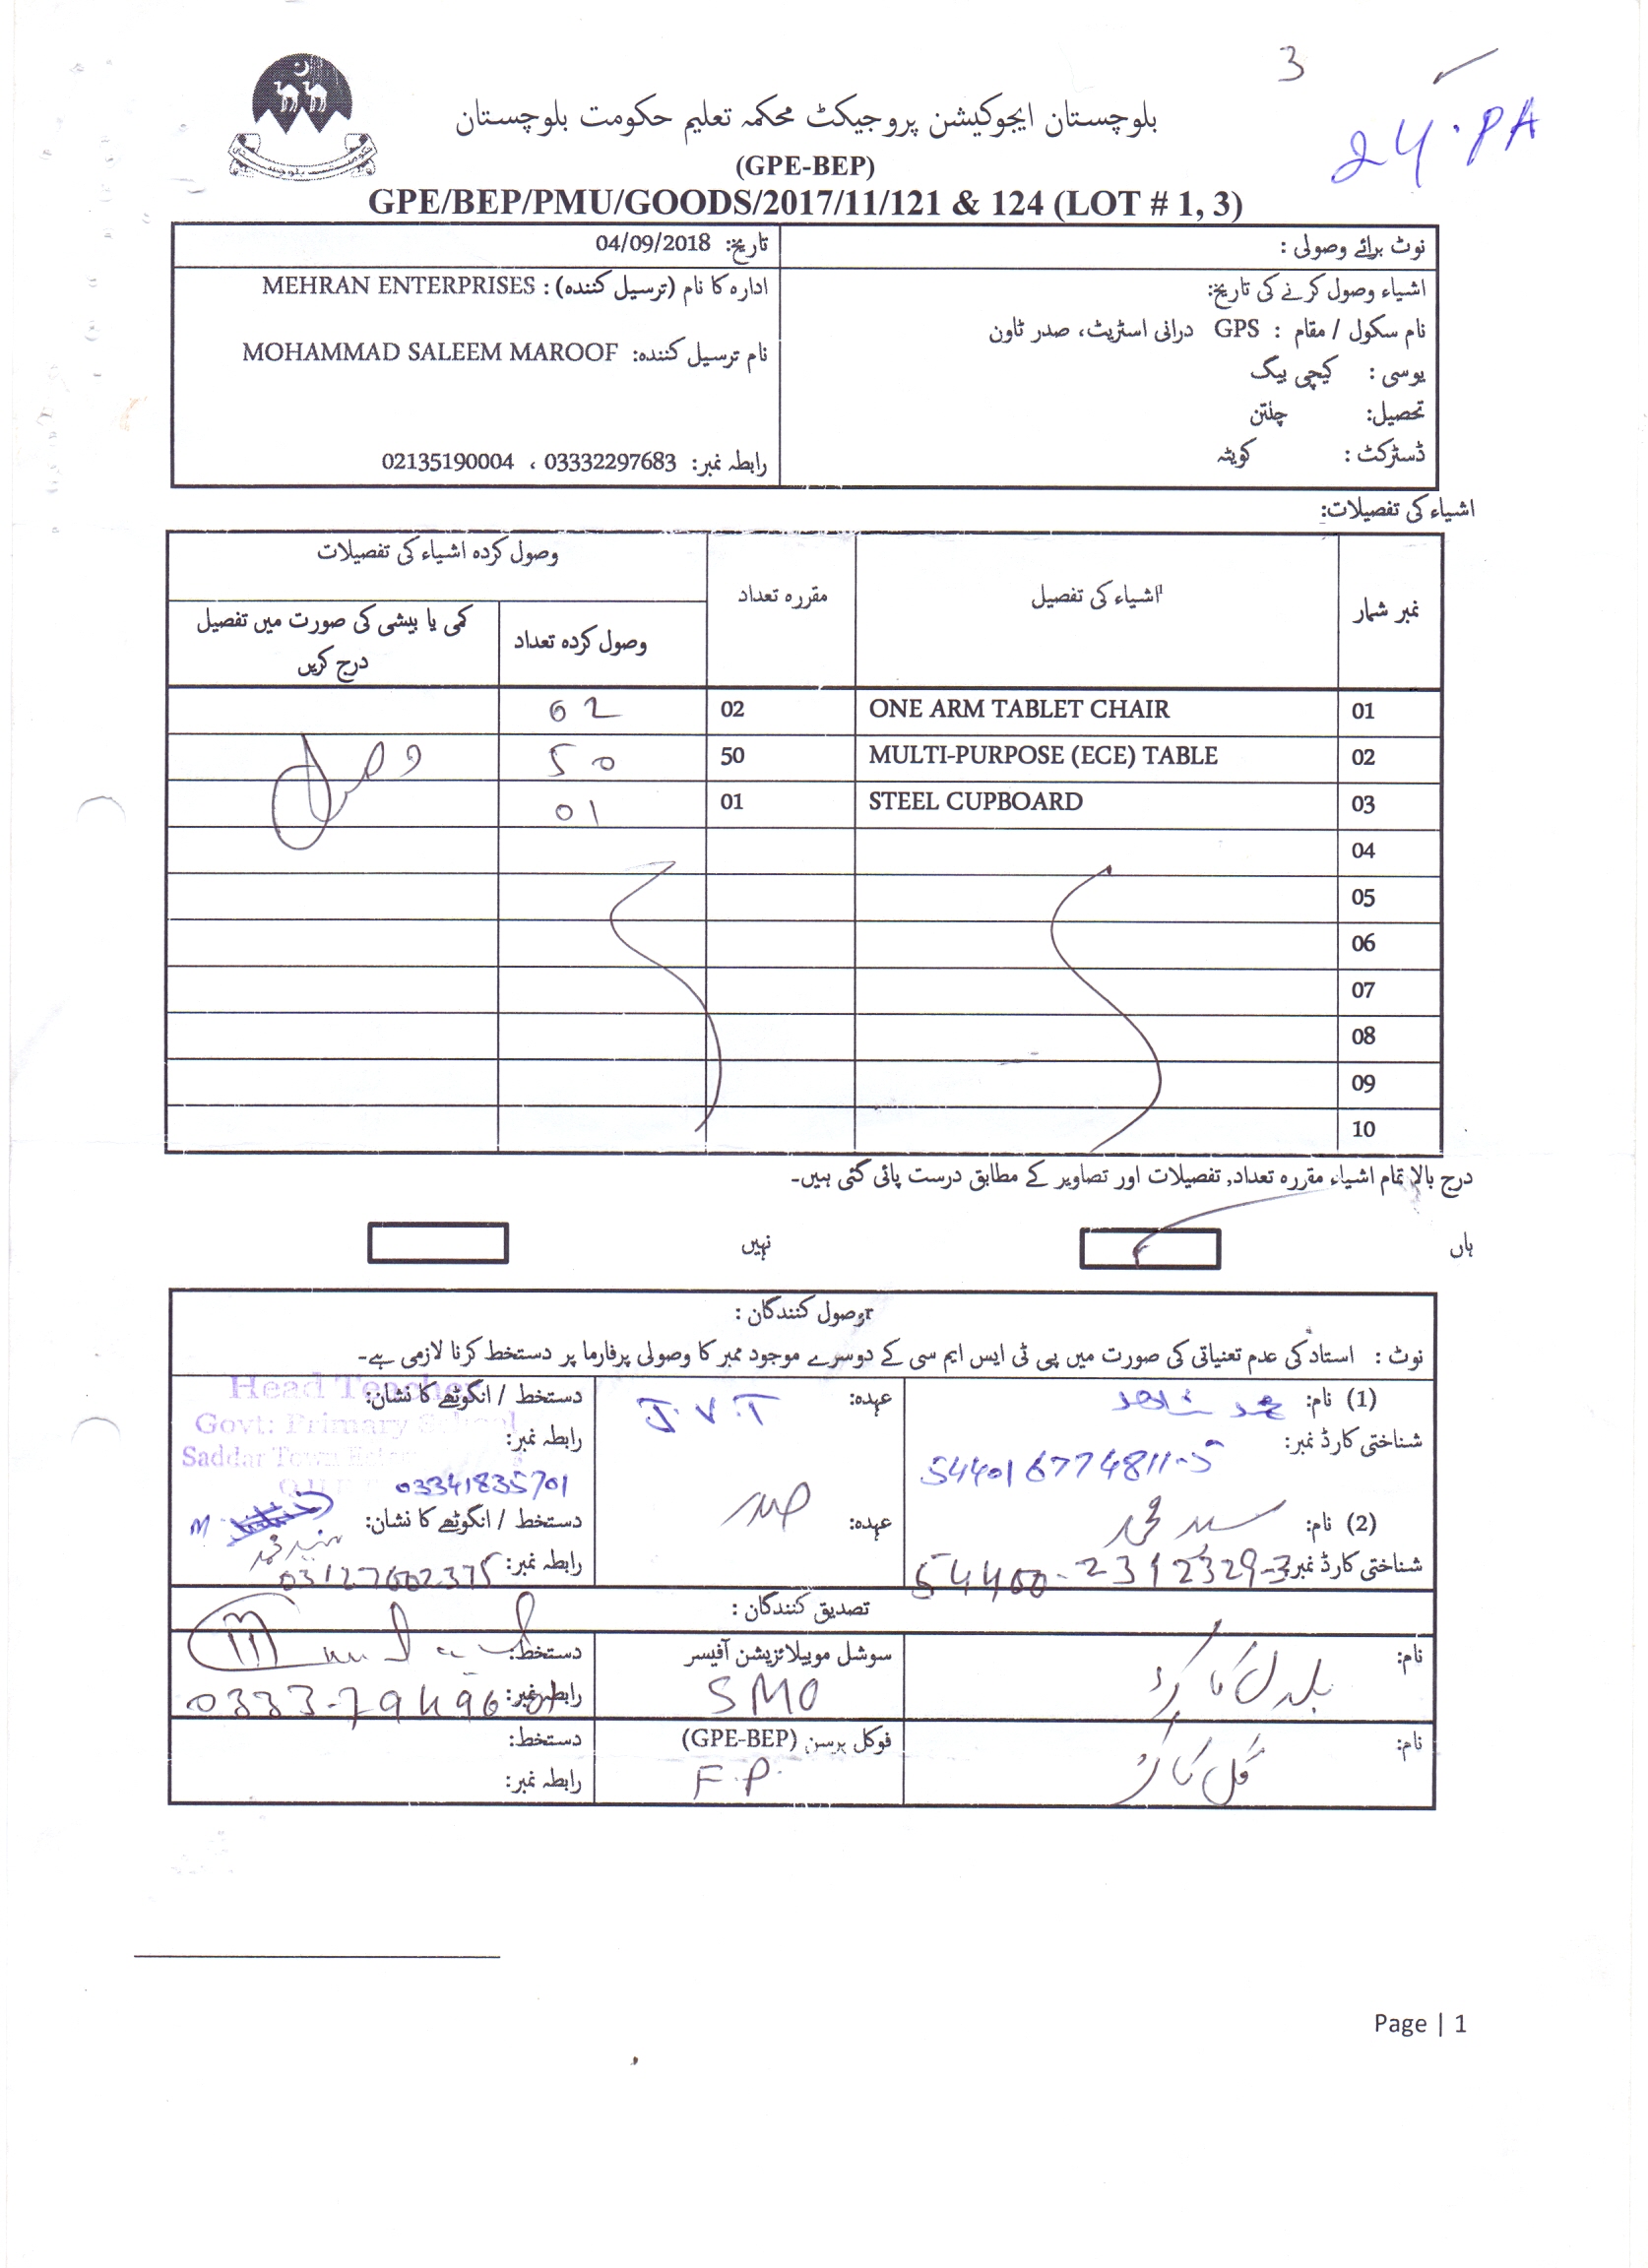 3
24.PA
بلوچستان ایجوکیشن پروجیکٹ محکمہ تعلیم حکومت بلوچستان
(GPE-BEP)
GPE/BEP/PMU/GOODS/2017/11/121 & 124 (LOT # 1, 3)
نوٹ برائے وصولی :
تاریخ: 04/09/2018
اشیاء وصول کرنے کی تاریخ:
ادارہ کا نام (ترسیل کنندہ) : MEHRAN ENTERPRISES
نام سکول / مقام : GPS درانی اسٹریٹ، صدر ٹاون
نام ترسیل کنندہ: MOHAMMAD SALEEM MAROOF
یوسی : کیچی بیگ
تحصیل: چلتن
ڈسٹرکٹ : کویٹہ
رابطہ نمبر: 03332297683 ، 02135190004
اشیاء کی تفصیلات:
نمبر شمار اشیاء کی تفصیل مقررہ تعداد وصول کردہ اشیاء کی تفصیلات
وصول کردہ تعداد کمی یا بیشی کی صورت میں تفصیل درج کریں
01 ONE ARM TABLET CHAIR 02 02
02 MULTI-PURPOSE (ECE) TABLE 50 50
03 STEEL CUPBOARD 01 01
04
05
06
07
08
09
10
درج بالا تمام اشیاء مقررہ تعداد, تفصیلات اور تصاویر کے مطابق درست پائی گئی ہیں۔
ہاں نہیں
وصول کنندگان :
نوٹ : استاد کی عدم تعنیاتی کی صورت میں پی ٹی ایس ایم سی کے دوسرے موجود ممبر کا وصولی پرفارما پر دستخط کرنا لازمی ہے۔
(1) نام: محمد شاھد عہدہ: J.V.T دستخط / انگوٹھے کا نشان:
Head Teacher
Govt: Primary School
Saddar Town
شناختی کارڈ نمبر: 544016774811-5 رابطہ نمبر: 03341835701
(2) نام: سید محمد عہدہ: صدر دستخط / انگوٹھے کا نشان:
شناختی کارڈ نمبر: 54400-2312329-3 رابطہ نمبر: 03127602375
تصدیق کنندگان :
نام: سوشل موبیلائزیشن آفیسر دستخط:
SMO رابطہ نمبر:
نام: فوکل پرسن (GPE-BEP) دستخط:
F.P. رابطہ نمبر:
Page | 1